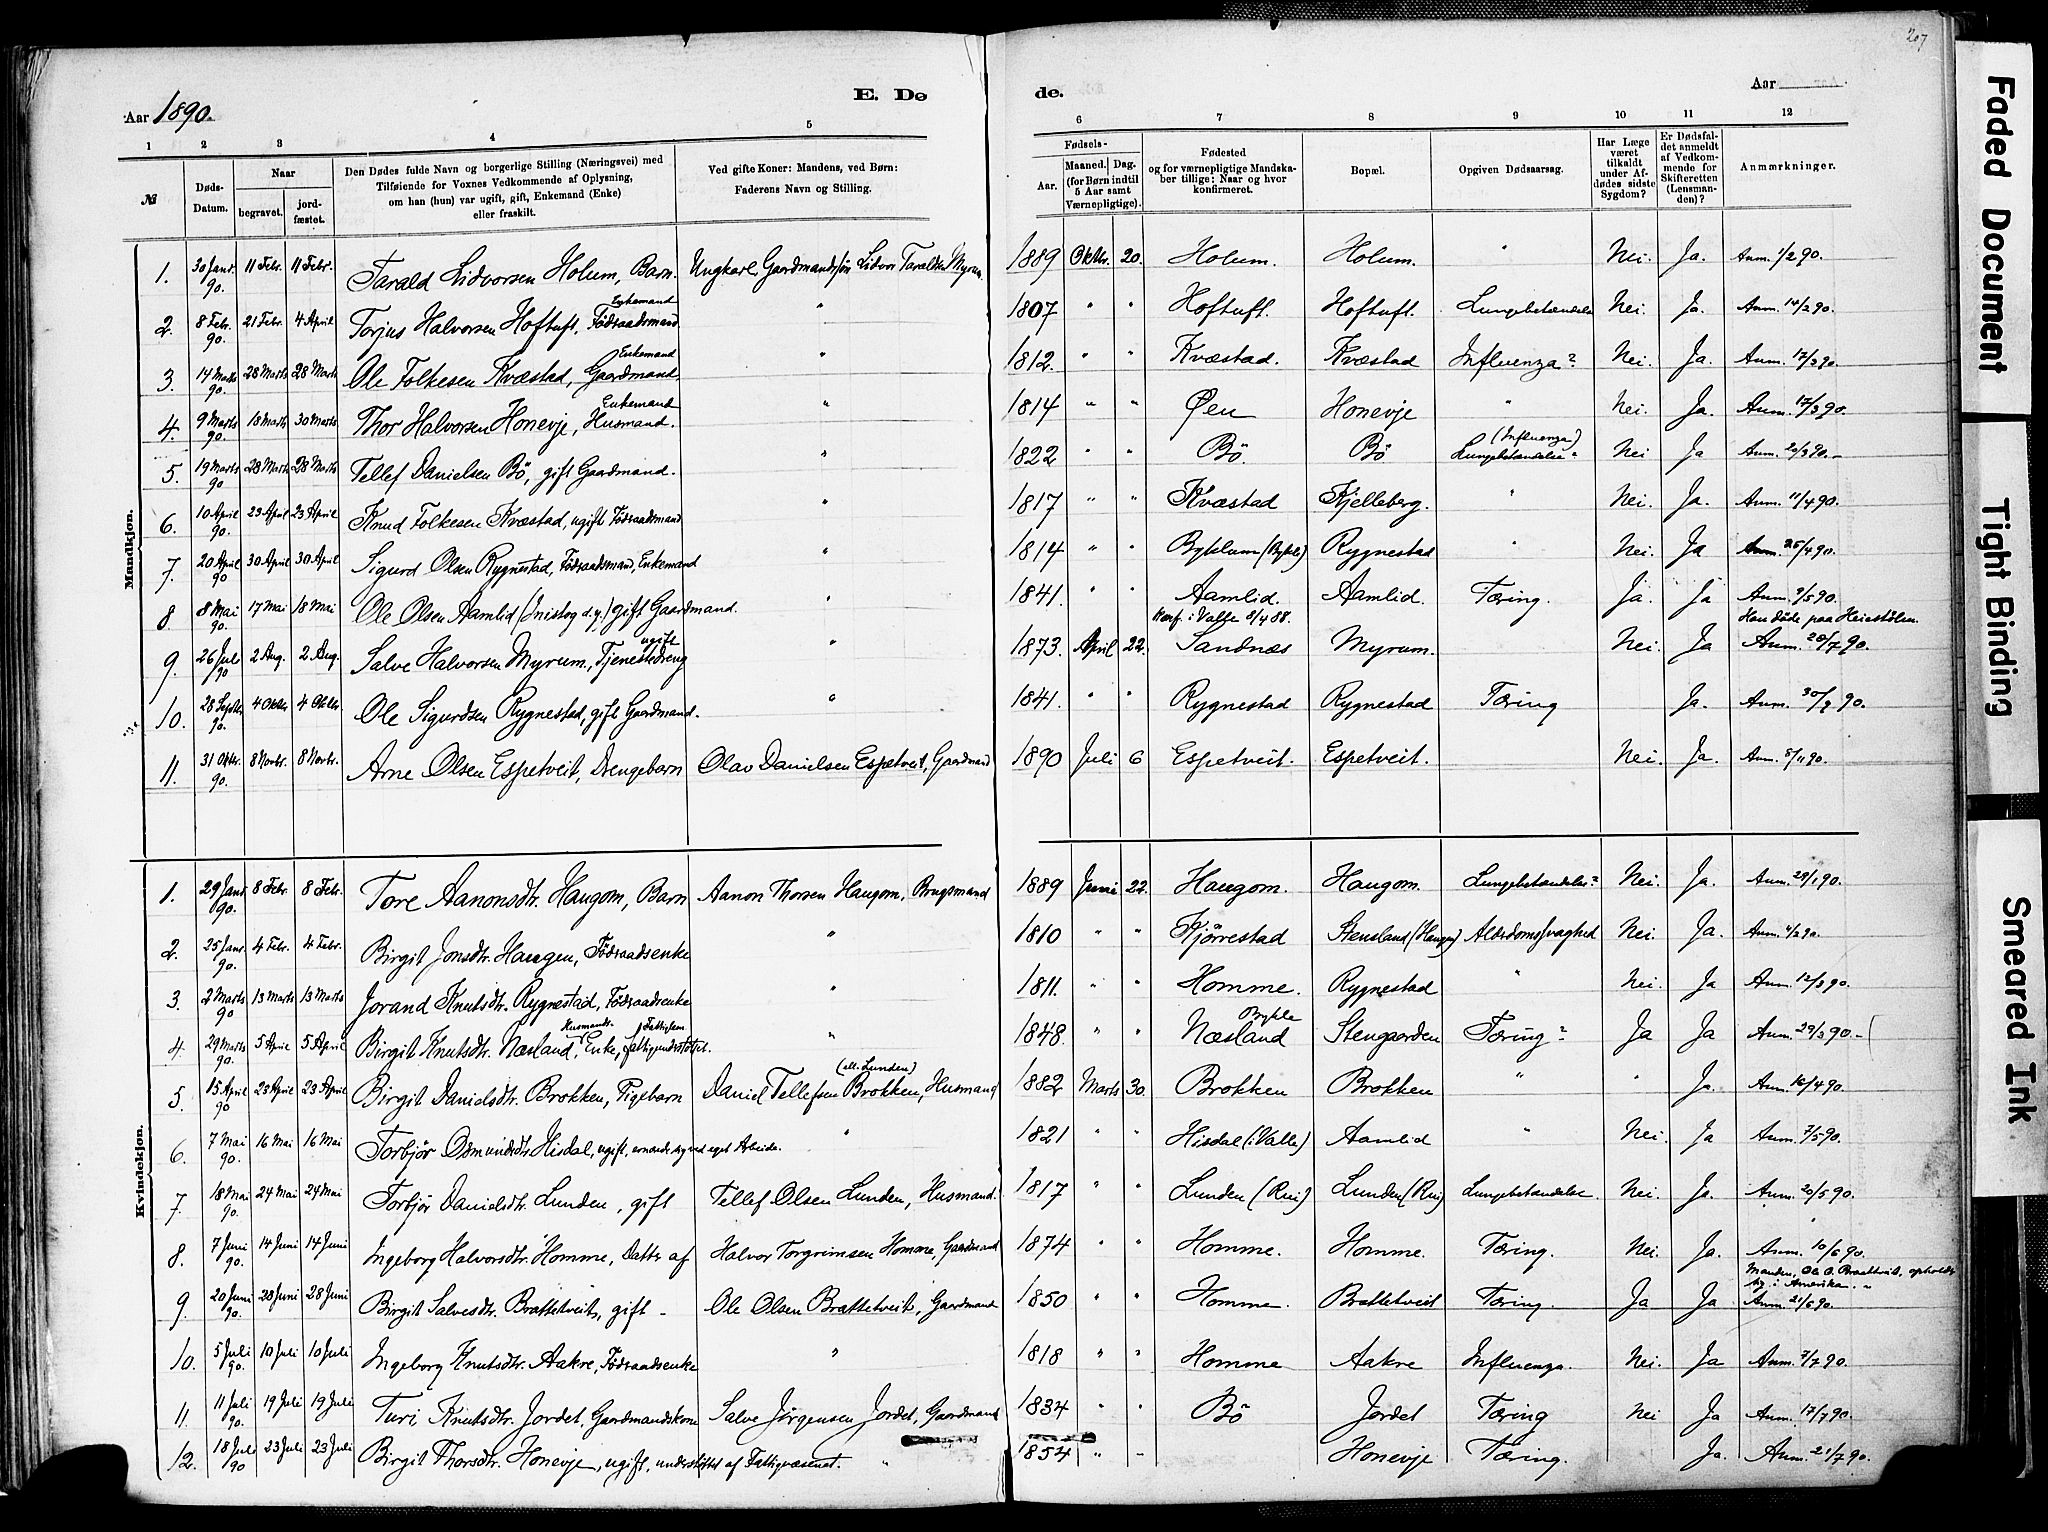 207
Aar 1890. E. Dø de. Aar
1 2 3 4 5 6 7 8 9 10 11 12
№ Døds-Datum. Naar begravet. jord-fæstet. Den Dødes fulde Navn og borgerlige Stilling (Næringsvei) med Tilføiende for Voxnes Vedkommende af Oplysning, om han (hun) var ugift, gift, Enkemand (Enke) eller fraskilt. Ved gifte Koner: Mandens, ved Børn: Faderens Navn og Stilling. Fødsels- Aar. Maaned. Dag. (for Børn indtil 5 Aar samt Værnepligtige). Fødested og for værnepligtige Mandskaber tillige: Naar og hvor konfirmeret. Bopæl. Opgiven Dødsaarsag. Har Læge været tilkaldt under Afdødes sidste Sygdom? Er Dødsfaldet anmeldt af Vedkommende for Skifteretten (Lensmanden)? Anmærkninger.
Mandkjøn.
1. 30 Janr. 90. 11 Febr. 11 Febr. Tarald Lidvorsen Holum, Barn. Ungkarl, Gaardmandssøn Lidvor Taraldsen Myrum. 1889 Oktbr. 20. Holum. Holum. " Nei. Ja. Anm. 1/2 90.
2. 8 Febr. 90. 21 Febr. 4 April Torjus Halvorsen Hoftuft, Enkemand Födraadsmand. " 1807 " " Hoftuft. Hoftuft. Lungebetændelse Nei. Ja. Anm. 14/2 90.
3. 14 Marts 90. 28 Marts 28 Marts Ole Folkesen Kvæstad, Enkemand Gaardmand. " 1812. " " Kvæstad. Kvæstad Influenza? Nei. Ja. Anm. 17/3 90.
4. 9 Marts 90. 18 Marts 30 Marts Thor Halvorsen Honevje, Enkemand Husmand. " 1814 " " Øen Honevje " Nei. Ja. Anm. 17/3 90.
5. 19 Marts 90 28 Marts 28 Marts Tellef Danielsen Bö, gift Gaardmand. " 1822 " " Bö. Bö (Influenza) Lungebetændelse " Nei Ja Anm. 20/3 90.–
6. 10 April 90. 23 April 23 April Knud Folkesen Kvæstad, ugift Födraadsmand " 1817 " " Kvæstad Kjelleberg. " Nei. Ja. Anm. 11/4 90.
7. 20 April 90 30 April 30 April Sigurd Olsen Rygnestad, Födraadsmand, Enkemand " 1814 " " Byklum (Bykle) Rygnestad " Nei. Ja Anm. 25/4 90.
8 8 Mai 90. 17 Mai 18 Mai Ole Olsen Aamlid (Inistog d.y.) gift Gaardmand. " 1841. " " Aamlid. Aamlid. Tæring. Ja. Ja Anm. 9/5 90. Han døde paa Heiestölen.
9. 26 Juli 90 2 Aug. 2 Aug. Salve Halvorsen Myrum, ugift Tjenestedreng " 1873. April 22. Konf. i Valle 8/4 88. Sandnæs Myrum. Nei. Ja Anm. 28/7 90.
10. 28 Septbr. 90. 4 Oktbr 4 Oktbr Ole Sigurdsen Rygnestad, gift Gaardmand. " 1841. " " Rygnestad Rygnestad Tæring Ja. Anm. 30/9 90.
11. 31 Oktbr. 90. 8 Novbr. 8 Novbr. Arne Olsen Espetveit, Drengebarn Olav Danielsen Espetveit, Gaardmand 1890 Juli 6 Espetveit. Espetveit. Nei. Ja. Anm. 8/11 90.
Kvindekjøn.
1. 29 Janr 90. 8 Febr. 8 Febr. Tore Aanonsdtr. Haugom, Barn Aanon Thorsen Haugom, Brugsmand 1889 Juni 22. Haugom. Haugom. Lungebetændelse? Nei. Ja. Anm. 29/1 90.
2. 25 Janr. 90. 4 Febr. 4 Febr. Birgit Jonsdtr. Haugen, Födraadsenke " 1810 " " Kjörrestad Stensland (Haugen) Alderdomssvaghed Nei. Ja. Anm. 4/2 90.
3. 2 Marts 90 13 Marts 13 Marts Jorand Knutsdtr. Rygnestad, Födraadsenke " 1811. " " Homme. Rygnestad " Nei Ja Anm. 12/3 90.
4. 29 Marts 90. 5 April 5 April Birgit Knutsdtr. Næsland, Husmands. Enke, Fattiglem fattigunderstöttet. " 1848. " " Bykle Næsland Stengaarden Tæring? Ja Ja Anm. 29/3 90.–
5. 15 April 90 23 April 23 April Birgit Danielsdtr. Brokken, Pigebarn Daniel Tellefsen (ell. Lunden) Brokken, Husmand 1882 Marts 30. Brokken Brokken " " Ja. Anm. 16/4 90.
6. 7 Mai 90. 16 Mai 16 Mai Torbjör Osmundsdtr. Hisdal, ugift, ernærede sig ved eget Arbeide. " 1821 " " Hisdal (i Valle) Aamlid " Nei. Ja Anm. 7/5 90.
7. 18 Mai 90. 24 Mai 24 Mai Torbjör Danielsdtr. Lunden, gift Tellef Olsen Lunden, Husmand. 1817 " " Lunden (Rui) Lunden (Rui) Lungebetændelse Nei. Ja. Anm. 20/5 90.
8. 7 Juni 90. 14 Juni 14 Juni Ingeborg Halvorsdtr. Homme, Datter af Halvor Torgrimsen Homme, Gaardmand 1874 " " Homme. Homme. Tæring. Nei. Ja. Anm. 10/6 90.
9. 20 Juni 90. 28 Juni 28 Juni Birgit Salvesdtr. Brattetveit, gift – Ole Olsen Brattetveit, Gaardmand 1850 " " Homme. Brattetveit Tæring. Ja Ja Manden, Ole O. Brattetveit, opholdt sig i Amerika. Anm. 21/6 90.
10. 5 Juli 90. 10 Juli 10 Juli Ingeborg Knutsdtr. Aakre, Födraadsenke " 1818 " " Homme Aakre Influenza. Nei. Ja Anm. 7/7 90.
11. 11 Juli 90. 19 Juli 19 Juli Turi Knutsdtr. Jordet, Gaardmandskone Salve Jörgensen Jordet, Gaardmand 1834 " " Bö Jordet Tæring Nei Ja Anm. 17/7 90.
12. 18 Juli 90 23 Juli 23 Juli Birgit Thorsdtr. Honevje, ugift, understöttet af Fattigvæsenet. " 1854 " – Honevje Tæring. Ja. Anm. 21/7 90.
Faded Document
Tight Binding
Smeared Ink